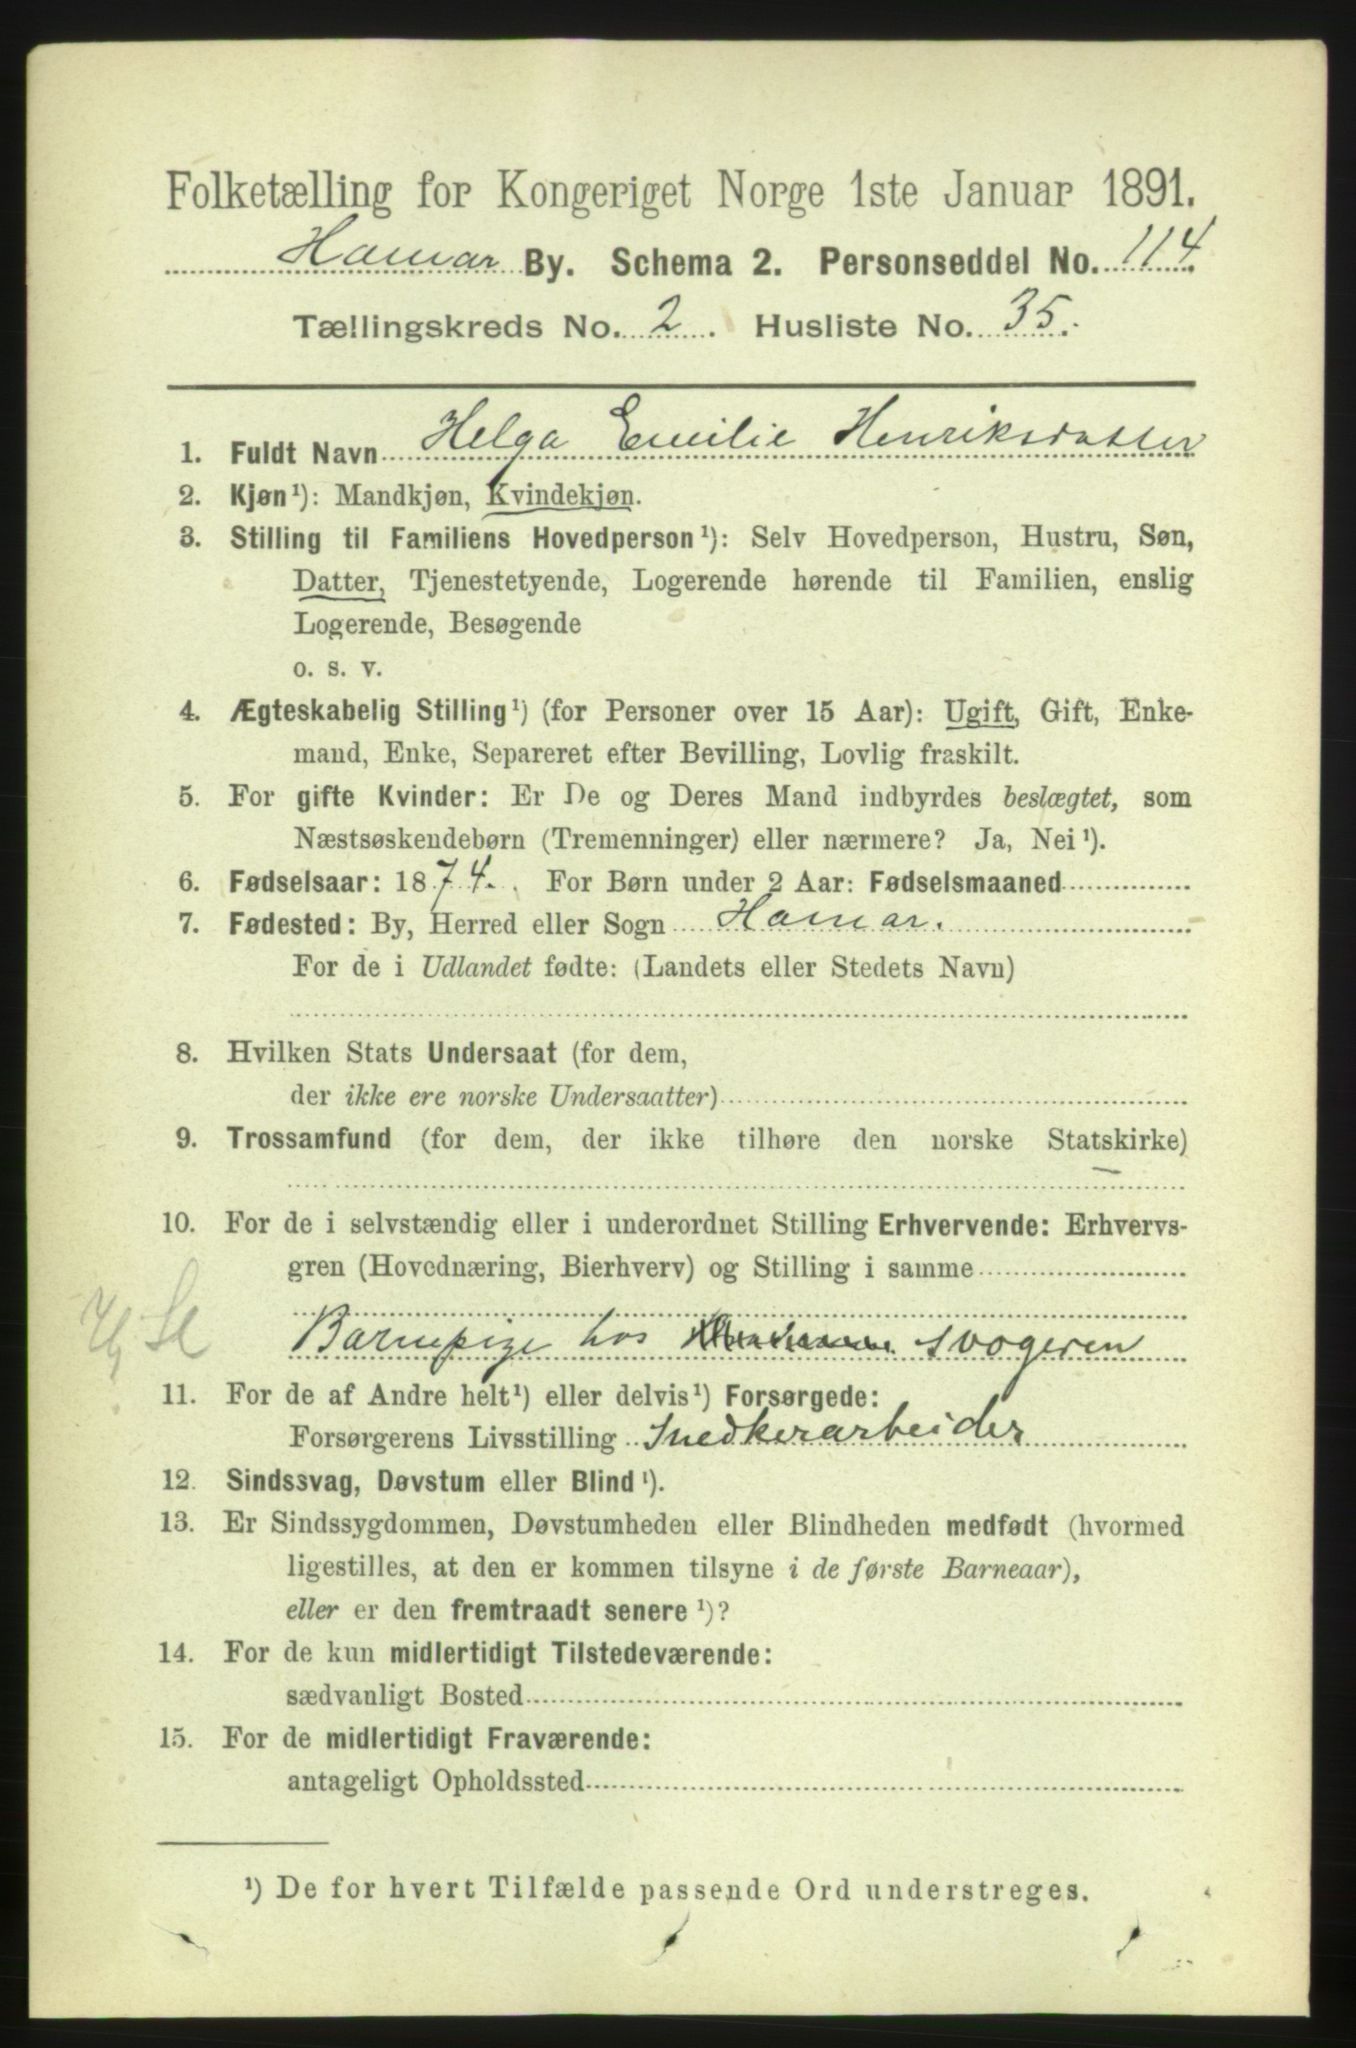 Folketælling for Kongeriget Norge 1ste Januar 1891.
Hamar By. Schema 2. Personseddel No. 114
Tællingskreds No. 2. Husliste No. 35.
1. Fuldt Navn Helga Emilie Henriksdatter
2. Kjøn¹): Mandkjøn, Kvindekjøn.
3. Stilling til Familiens Hovedperson¹): Selv Hovedperson, Hustru, Søn,
Datter, Tjenestetyende, Logerende hørende til Familien, enslig
Logerende, Besøgende
o. s. v.
4. Ægteskabelig Stilling¹) (for Personer over 15 Aar): Ugift, Gift, Enke-
mand, Enke, Separeret efter Bevilling, Lovlig fraskilt.
5. For gifte Kvinder: Er De og Deres Mand indbyrdes beslægtet, som
Næstsøskendebørn (Tremenninger) eller nærmere? Ja, Nei¹).
6. Fødselsaar: 1874. For Børn under 2 Aar: Fødselsmaaned
7. Fødested: By, Herred eller Sogn Hamar.
For de i Udlandet fødte: (Landets eller Stedets Navn)
8. Hvilken Stats Undersaat (for dem,
der ikke ere norske Undersaatter)
9. Trossamfund (for dem, der ikke tilhøre den norske Statskirke)
10. For de i selvstændig eller i underordnet Stilling Erhvervende: Erhvervs-
gren (Hovednæring, Bierhverv) og Stilling i samme
Barnepige hos Svogeren
11. For de af Andre helt¹) eller delvis¹) Forsørgede:
Forsørgerens Livsstilling Snedkerarbeider
12. Sindssvag, Døvstum eller Blind¹).
13. Er Sindssygdommen, Døvstumheden eller Blindheden medfødt (hvormed
ligestilles, at den er kommen tilsyne i de første Barneaar),
eller er den fremtraadt senere¹)?
14. For de kun midlertidigt Tilstedeværende:
sædvanligt Bosted
15. For de midlertidigt Fraværende:
antageligt Opholdssted
¹) De for hvert Tilfælde passende Ord understreges.